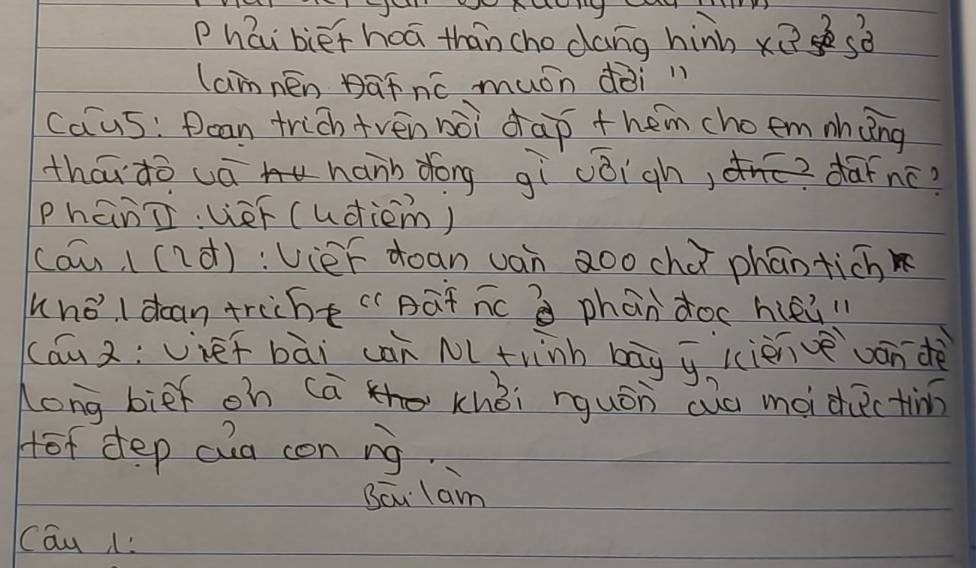 Phải biết hoá thân cho dáng hình xứ sở
Làm nên Đất nc muôn đời"
Câu 5: Đoạn trích trên bồi đắp thêm cho em những
thái độ và hành động gì với qh, đất nc?
Phần II: Viết (4 điểm)
Câu 1 (2đ): Viết đoạn văn 200 chữ phân tích
khổ 1 đoạn trích "Đất nc ở phần đọc hiểu"
Câu 2: Viết bài văn NL trình bày ý kiến về vấn đề
lòng biết ơn là khởi nguồn của mọi đức tính
tốt đẹp của con ng.
Bài làm
Câu 1: